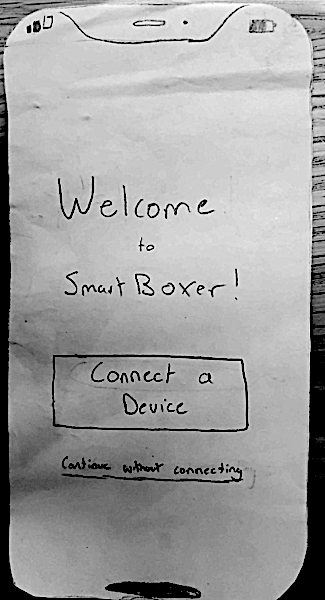 Welcome
to
Smart Boxer!
Connect a
Device
Continue without connecting